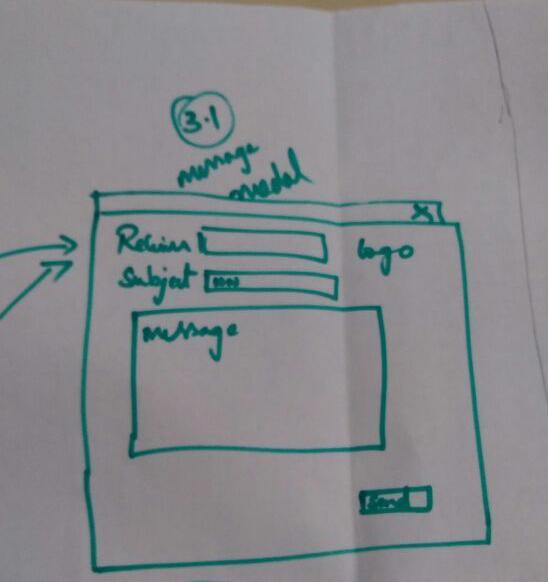 3.1
message
modal
X
logo
Subject
message
Send